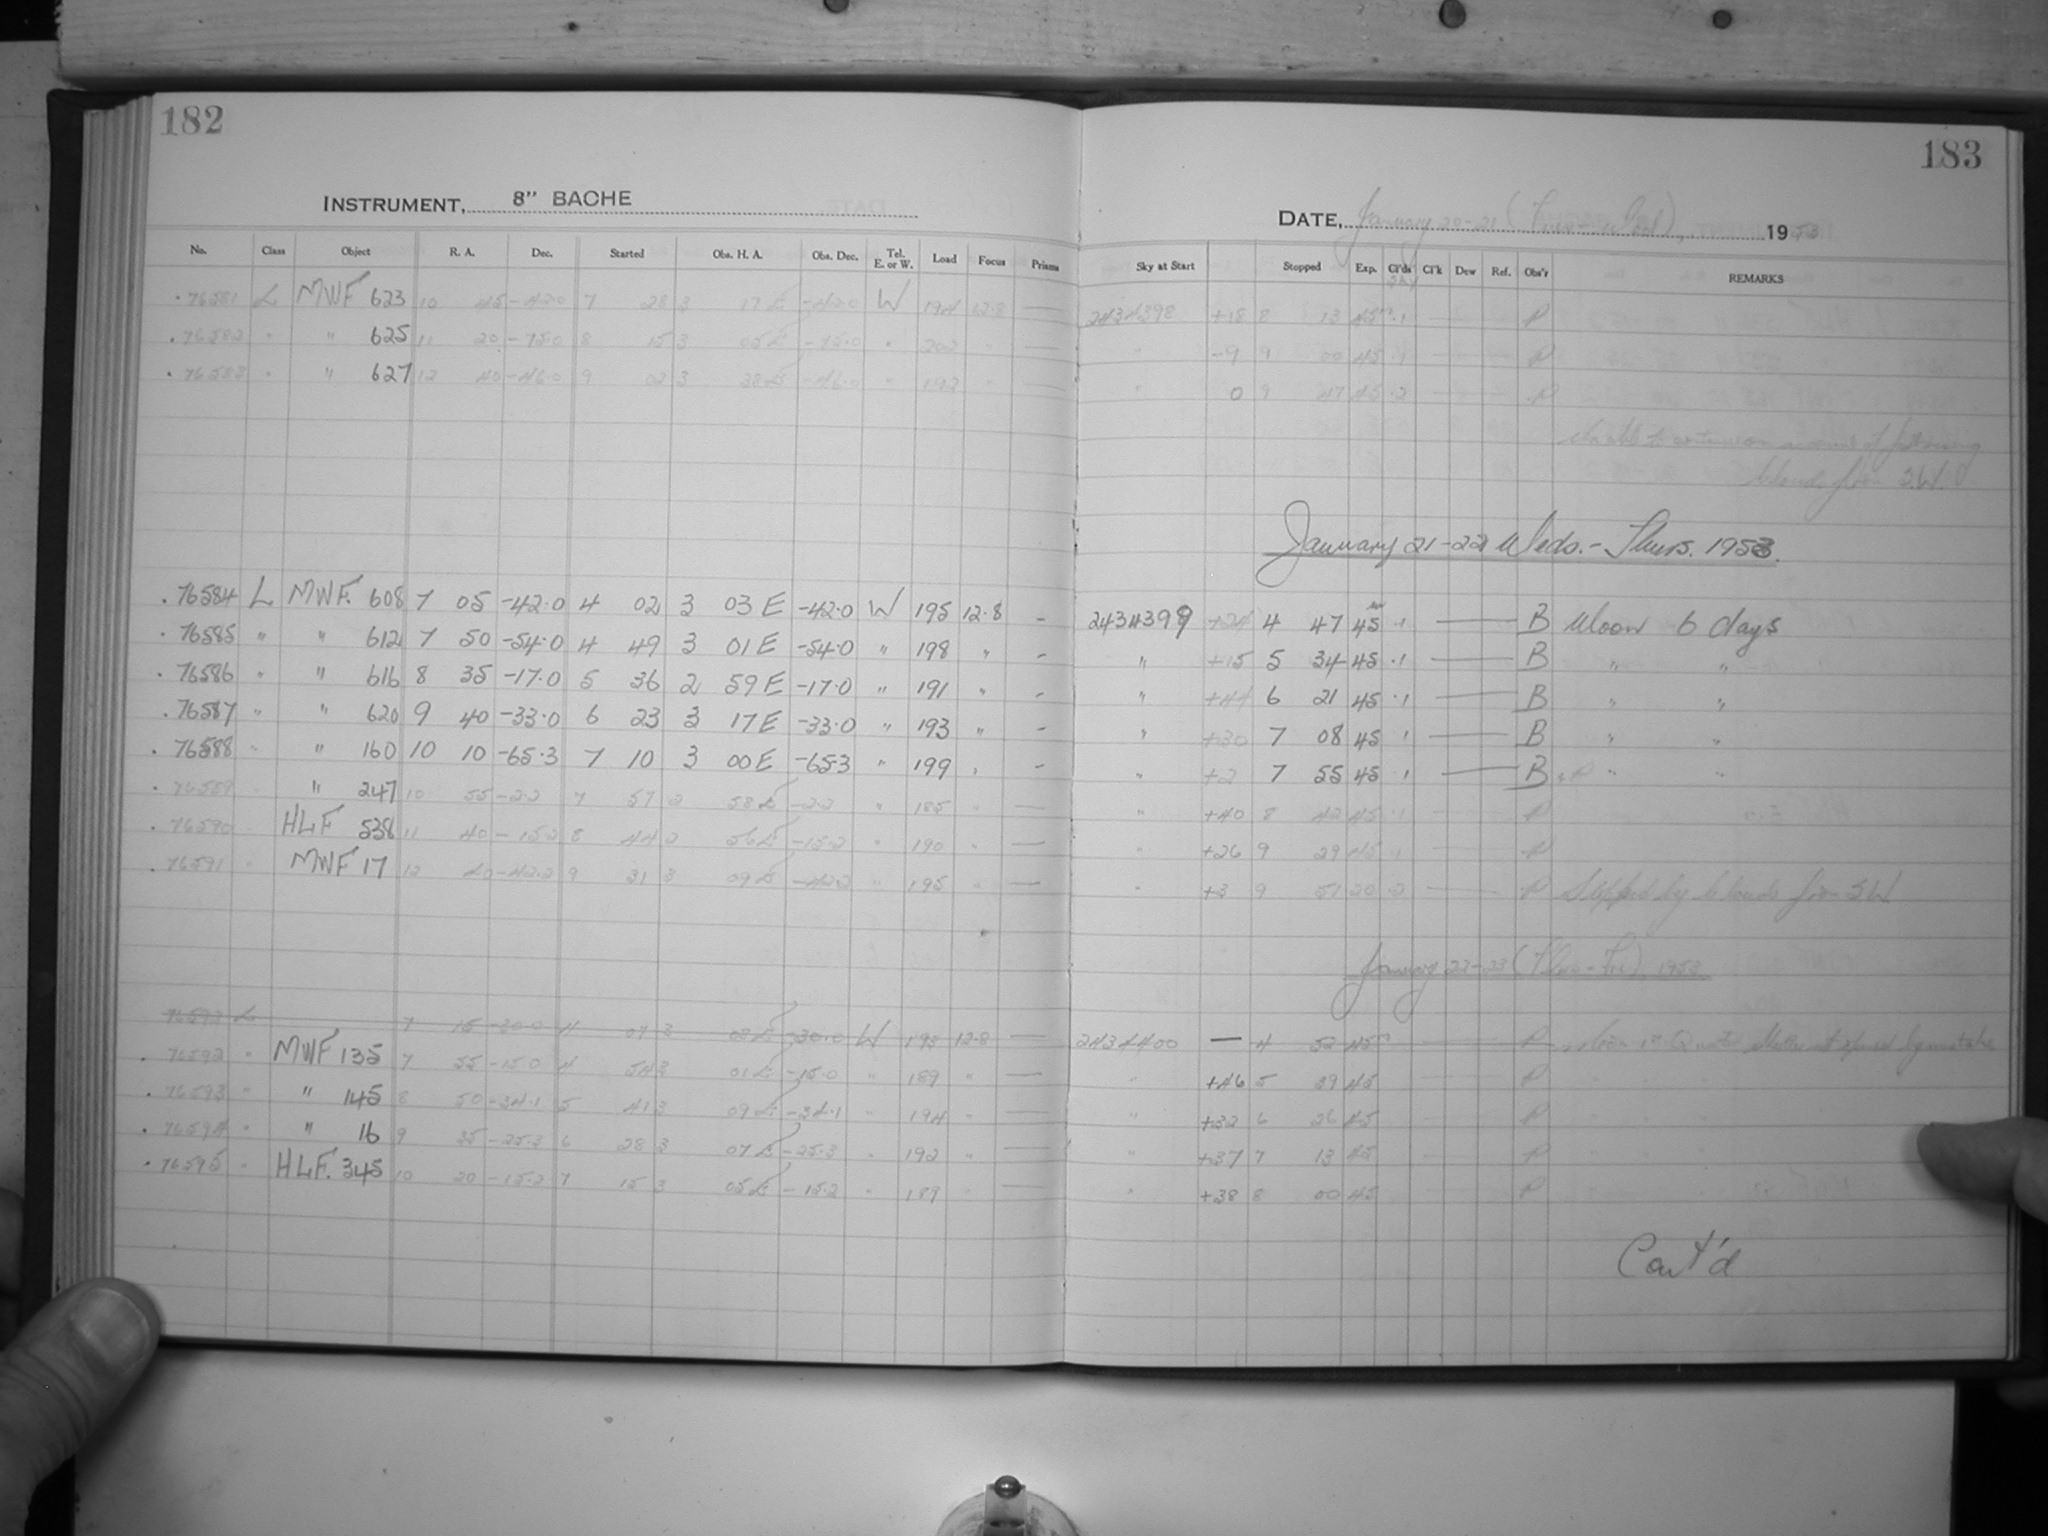 182
INSTRUMENT, 8" BACHE
No. Class Object R. A. Dec. Started Obs. H. A. Obs. Dec. Tel. E. or W. Load Focus Prisms
76581 L MWF 623 10 45 -42.0 7 28 3 17 E -42.0 W 194 12.8 —
76582 " " 625 11 20 -75.0 8 15 3 05 E -75.0 " 202 " —
76583 " " 627 12 40 -46.0 9 02 3 38 E -46.0 " 193 " —
76584 L MWF. 608 7 05 -42.0 4 02 3 03 E -42.0 W 195 12.8 -
76585 " " 612 7 50 -54.0 4 49 3 01 E -54.0 " 198 " -
76586 " " 616 8 35 -17.0 5 36 2 59 E -17.0 " 191 " -
76587 " " 620 9 40 -33.0 6 23 3 17 E -33.0 " 193 " -
76588 " " 160 10 10 -65.3 7 10 3 00 E -65.3 " 199 " -
76589 " " 247 10 55 -2.2 7 57 2 58 E -2.2 " 185 " —
76590 " HLF 538 11 40 -15.2 8 44 2 56 E -15.2 " 190 " —
76591 " MWF 17 12 40 -42.2 9 31 3 09 E -42.2 " 195 " —
76592 L 7 15 -30.0 4 07 3 08 E -30.0 W 193 12.8 —
76592 " MWF 135 7 55 -15.0 4 54 3 01 E -15.0 " 189 " —
76593 " " 145 8 50 -34.1 5 41 3 09 E -34.1 " 194 " —
76594 " " 16 9 35 -25.3 6 28 3 07 E -25.3 " 192 " —
76595 " HLF. 345 10 20 -15.2 7 15 3 05 E -15.2 " 189 " —
183
DATE, January 20-21 (Tues-Wed), 1953
Sky at Start Stopped Exp. Cl'ds Sky Cl'k Dew Ref. Obs'r REMARKS
2434398 +18 8 13 45m .1 — P
" -9 9 00 45 .1 — P
" 0 9 47 45 .2 — P
Unable to continue on account of
clouds from S.W.
January 21-22 Weds.- Thurs. 1953.
2434399 +24 4 47 45m .1 — B Moon 6 days
" +15 5 34 45 .1 — B " "
" +44 6 21 45 .1 — B " "
" +30 7 08 45 .1 — B " "
" +2 7 55 45 .1 — B & P " "
" +40 8 42 45 .1 — P
" +26 9 29 45 .1 — P
" +3 9 51 20 .2 — P Stopped by clouds from SW
January 22-23 (Thurs-Fri), 1953
2434400 — 4 52 45m — P Moon 1st Quarter Shutter not opened by mistake
" +46 5 39 45 — P
" +32 6 26 45 — P
" +37 7 13 45 — P
" +38 8 00 45 — P
Cont'd